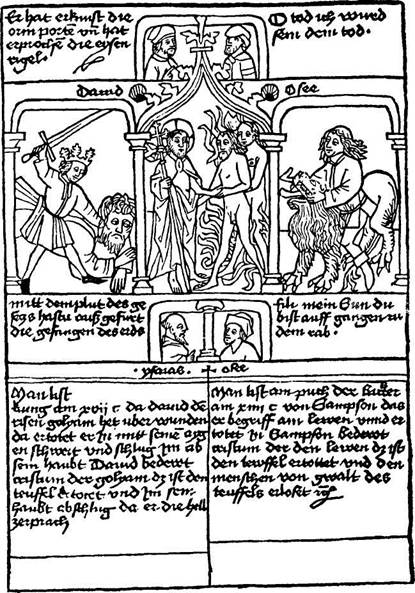 Er hat erknist die
erin porte vn̄ hat
erproche die eysen
rigel.
O tod ich wurd
sein dem tod.
David
Osee
mitt dem plut des ge
segs hastu auß gefürt
die gefangen des eids
für mein Sun du
bist auff gangen zu
dem rab.
ysaias
Man list
kung am xvij c da david de
risen goliam het über wunden
da ertotet er in mitt seinē aygen
schwert und schlug Im ab
sein haubt David bedewt
cristum der goliam dz ist den
teuffel ertotet und Im sein
haubt abschlug da er die hell
zerprach
Man list am puch der
am xiiij c von Sampson das
er begriff am lewen unnd er
totet in Sampson bedewt
cristum der den lewen dz ist
den tewffel ertöttet und den
menschen von gwalt des
teuffels erloset